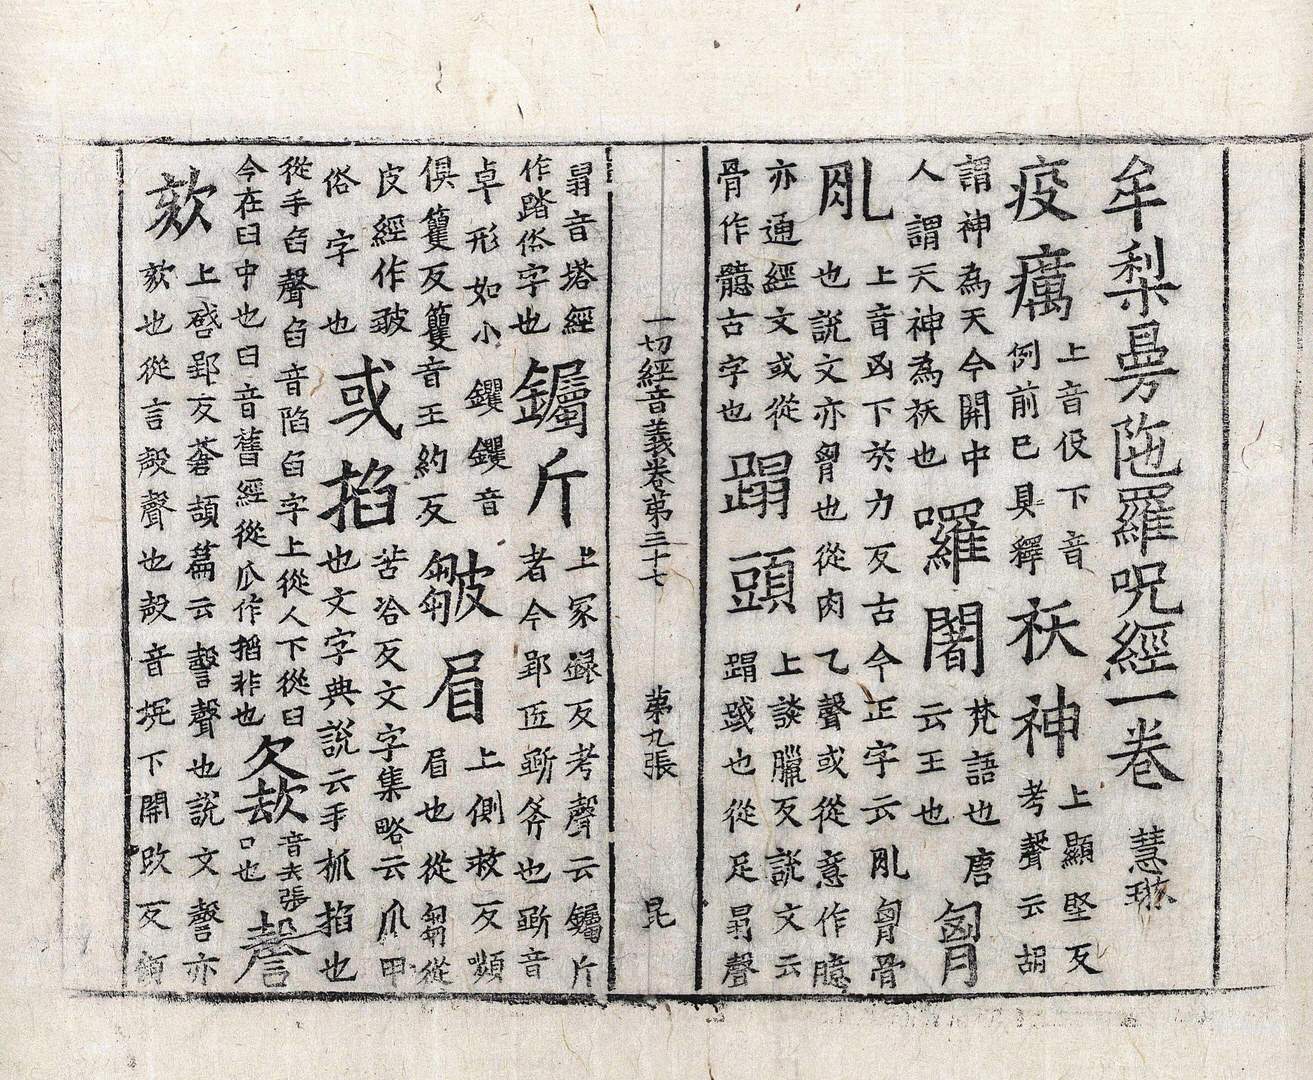 牟梨曼陁羅呪經一卷 慧琳
疫癘
上音伇下音
例前已具釋
祆神
上顯堅反
考聲云胡
謂神為天今開中
人謂天神為祆也
囉闍
梵語也唐
云王也
胷
肊
上音凶下於力反古今正字云肊胷骨
也說文亦胷也從肉乙聲或從意作臆
亦通經文或從
骨作䯨古字也
蹋頭
上談臘反說文云
蹋踐也從足𦐇聲
一切經音義卷第三十七 第九張 昆
𦐇音塔經
作踏俗字也
钃斤
上冢録反考聲云钃斤
者今郢匠斲斧也斲音
卓形如小钁钁音
俱籰反籰音王約反
皺眉
上側救反顰
眉也從芻從
皮經作皷
俗字也
或掐
苦洽反文字集略云爪甲
也文字典說云手抓掐也
從手臽聲臽音陷臽字上從人下從臼
今在臼中也臼音舊經從爪作搯非也
欠㰦
音去張
口也
謦
欬
上啓郢反蒼頡篇云謦聲也說文謦亦
欬也從言殸聲也殸音 下開改反顧